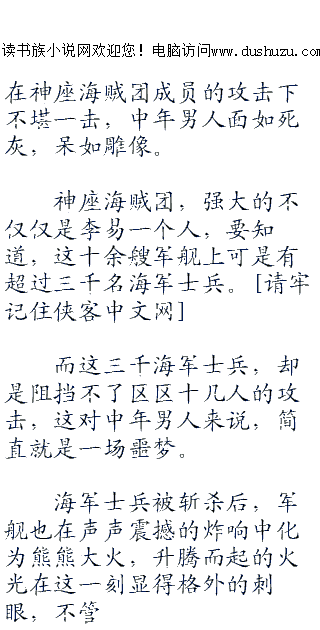 读书族小说网欢迎您！电脑访问www.dushuzu.com
在神座海贼团成员的攻击下
不堪一击，中年男人面如死
灰，呆如雕像。
神座海贼团，强大的不
仅仅是李易一个人，要知
道，这十余艘军舰上可是有
超过三千名海军士兵。[请牢
记住侠客中文网]
而这三千海军士兵，却
是阻挡不了区区十几人的攻
击，这对中年男人来说，简
直就是一场噩梦。
海军士兵被斩杀后，军
舰也在声声震撼的炸响中化
为熊熊大火，升腾而起的火
光在这一刻显得格外的刺
眼，不管